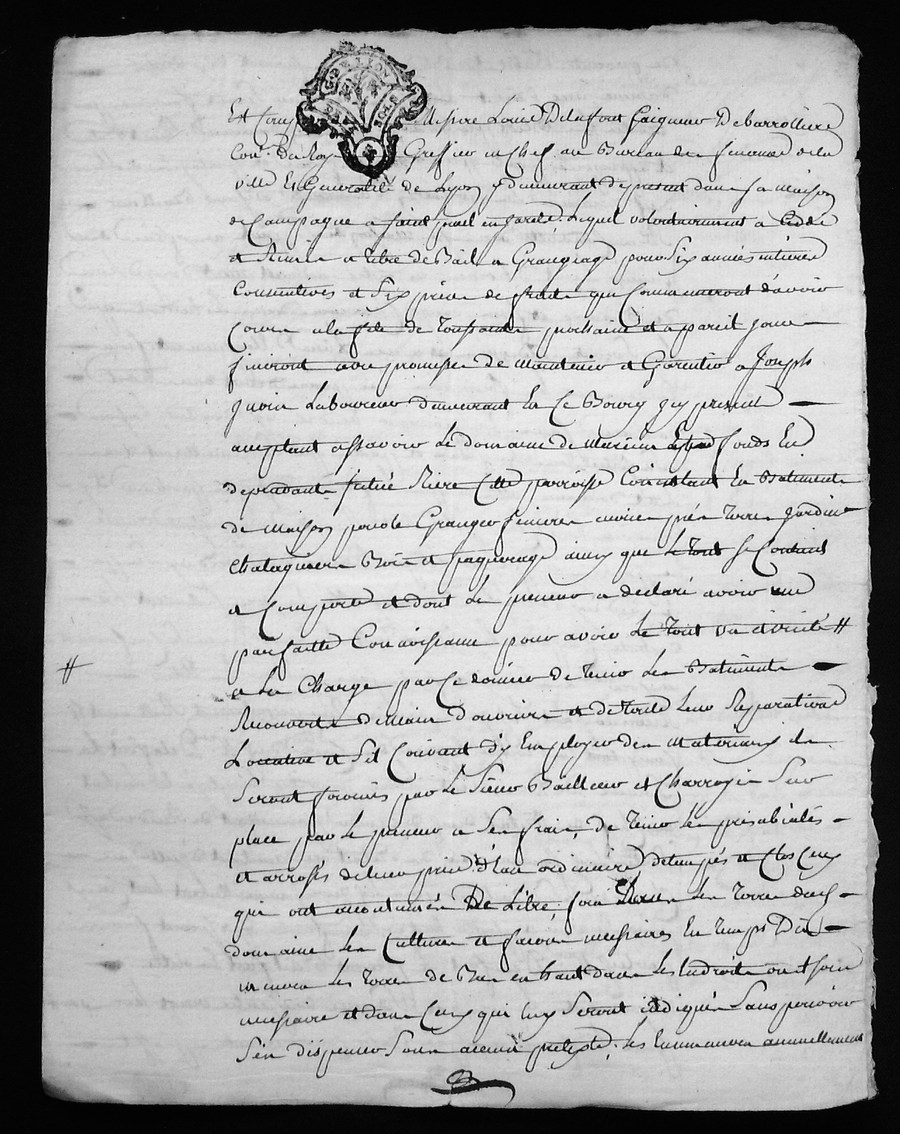 GEN. LYON
Et Comp Messire Louis Delafont Gaigneur Debarrolliere
Con. Du Roy Greffier en Chef au Bureau des finances de la
ville Et Generalité de Lyon y demeurant de present dans sa Maison
de Campagne a saint en jarest, Lequel volontairement a Cedé
et Remis a titre de Bail a Grangeage pour Six années entieres
Consecutives et Six prises de fruits qui Commenceront d'avoir
Cours a la fete de Toussaint prochaine et a pareil jour
finiront avec promesse de maintenir et Garentir a Joseph
Laboureur demeurant En Ce Bourg icy present
acceptant assavoir Le domaine de fonds En
dependants situé Riere Cette parroisse Consistant En Batiments
de Maison pour le Granger prés Terres Jardin
Bois et paquerage ainsy que Le tout se Contient
et Comporte et dont Le preneur a declaré avoir une
parfaitte Connaissance pour avoir Le tout vu visité #
# et Les Charge par Ce dernier de tenir Les Batiments
Recouverts de main d'ouvrier et de toute leur Reparations
Locative et S'il Convient d'y Employer des materiaux ils
Seront fournis par Le Sieur Bailleur et Charroyés Sur
place par Le preneur a Ses frais, de tenir Les prés
et arrosés de leur prise d'Eau ordinaire, et Clos Ceux
qui ont accoutumé De L'être, faire Dans Les Terres dud.
domaine Les Cultures et facons necessaires En temps Dû
Les Terres de Bas en haut dans Les Endroits ou il sera
necessaire et dans Ceux qui luy Seront indiqués Sans pouvoir
S'en dispenser Sous aucun pretexte, Les annuellement